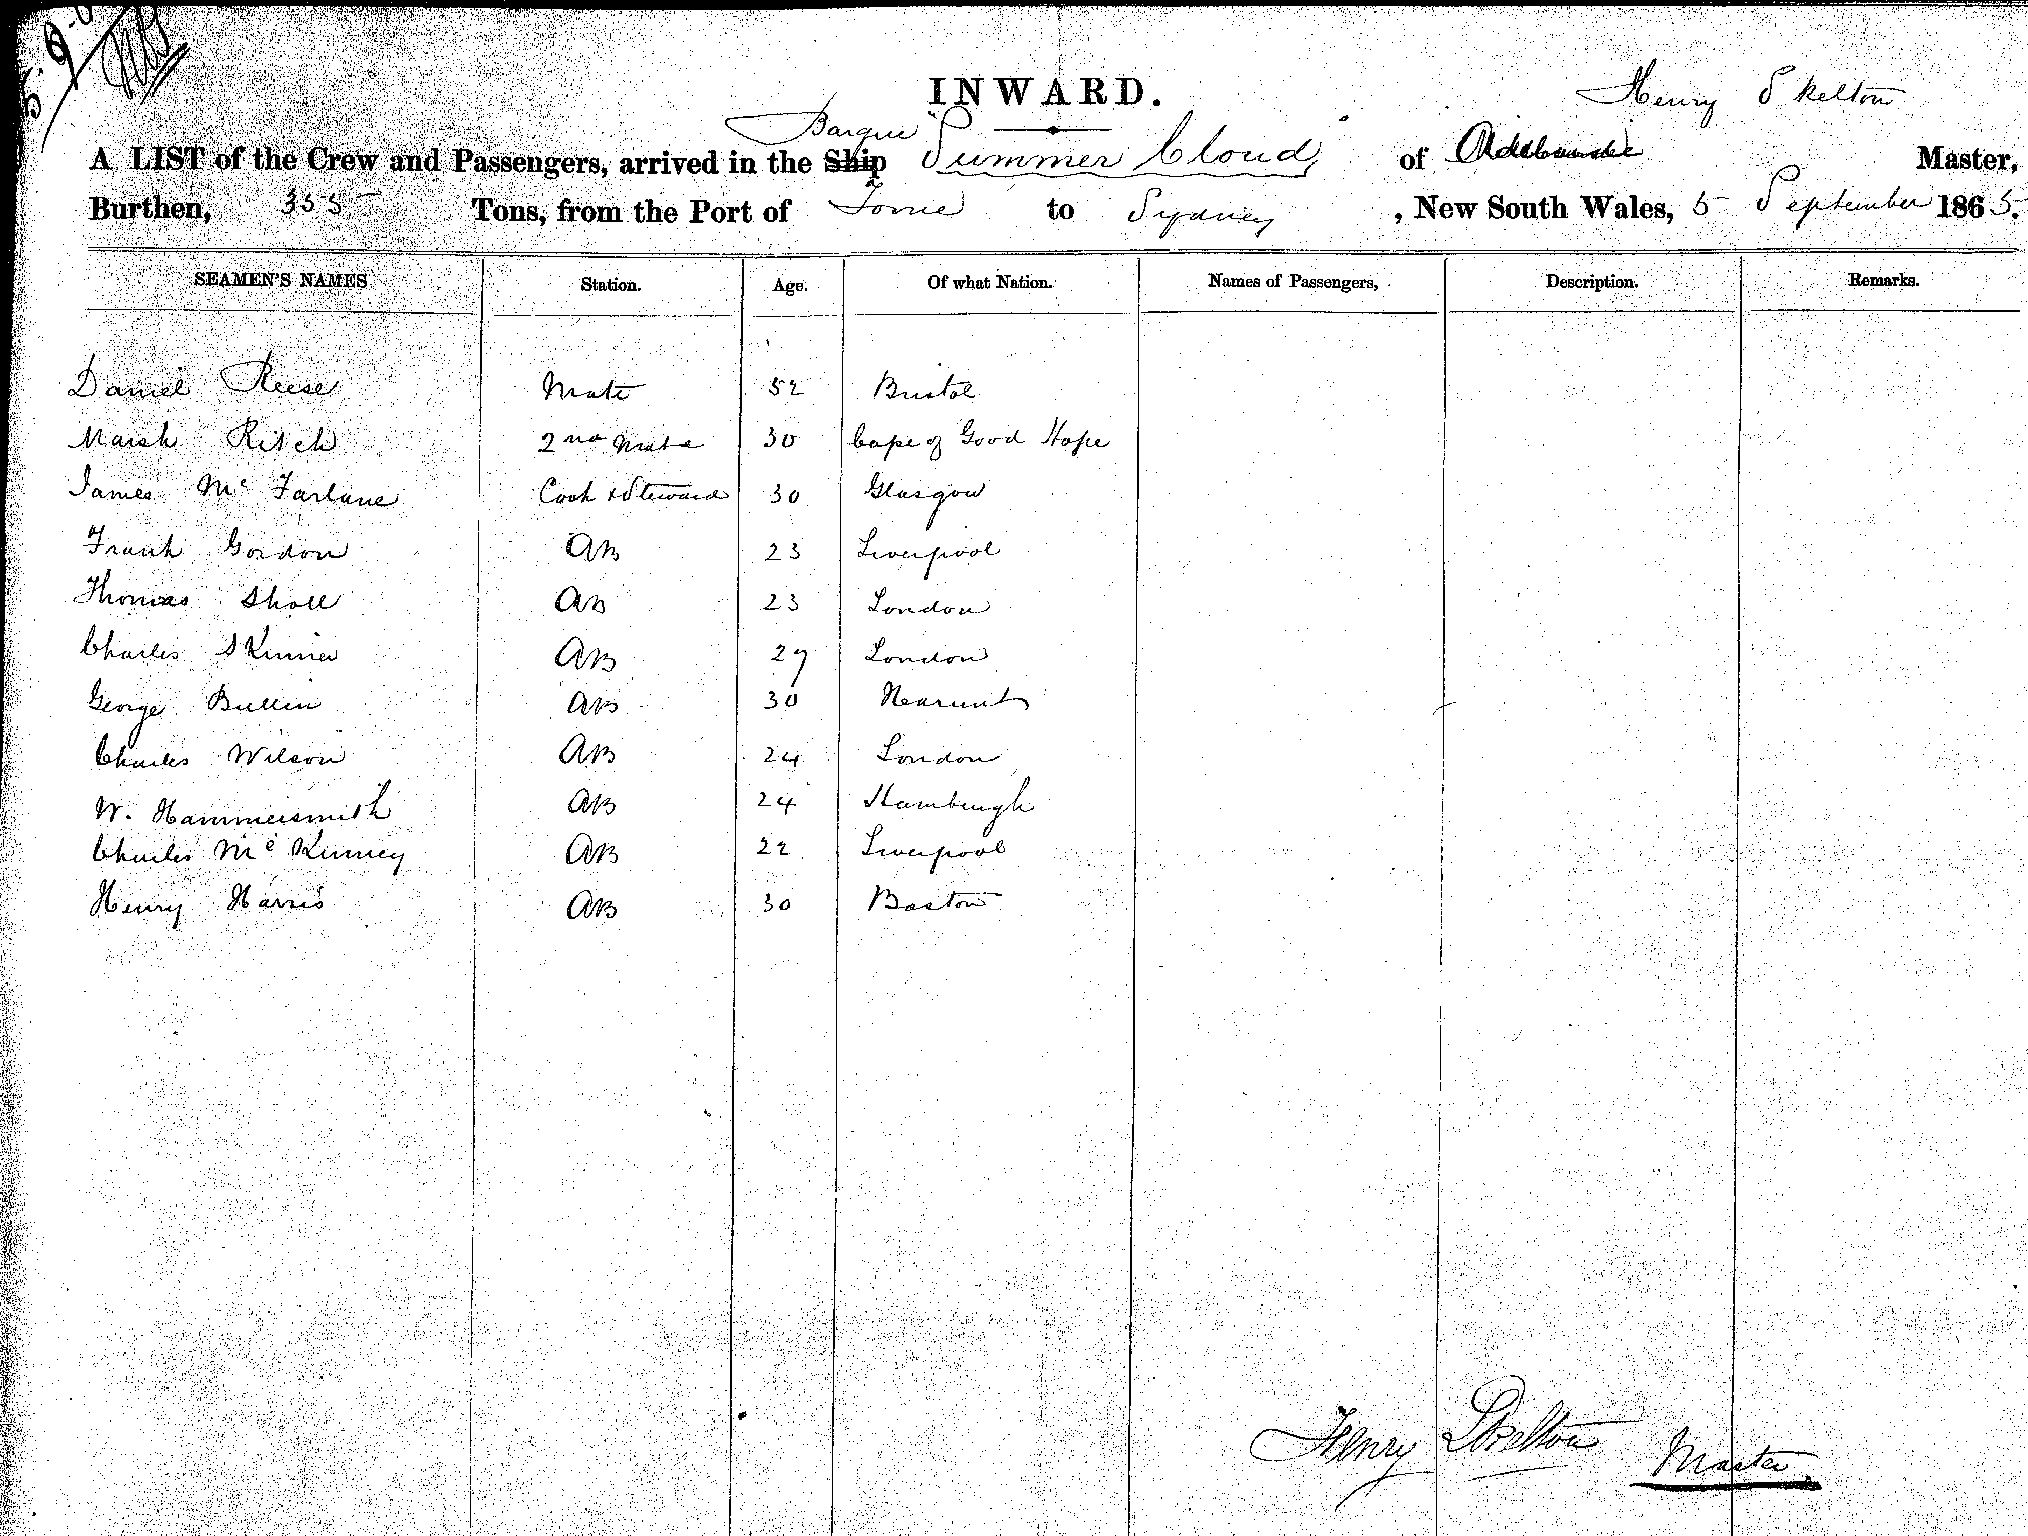 5.9.
INWARD.
Henry Skelton
Barque
A LIST of the Crew and Passengers, arrived in the Ship "Summer Cloud" of Master,
Burthen, 355 Tons, from the Port of Tome to Sydney, New South Wales, 5 September 1865.
SEAMEN'S NAMES Station. Age. Of what Nation. Names of Passengers, Description. Remarks.
Daniel Reese Mate 52 Bristol
Marsh Ritch 2nd Mate 30 Cape of Good Hope
James McFarlane Cook & Steward 30 Glasgow
Frank Gordon AB 23 Liverpool
Thomas Sholl AB 23 London
Charles Skinner AB 27 London
George Bullin AB 30
Charles Wilson AB 24 London
W. Hammersmith AB 24 Hamburgh
Charles McKinney AB 22 Liverpool
Henry Harris AB 30 Boston
Henry Skelton Master